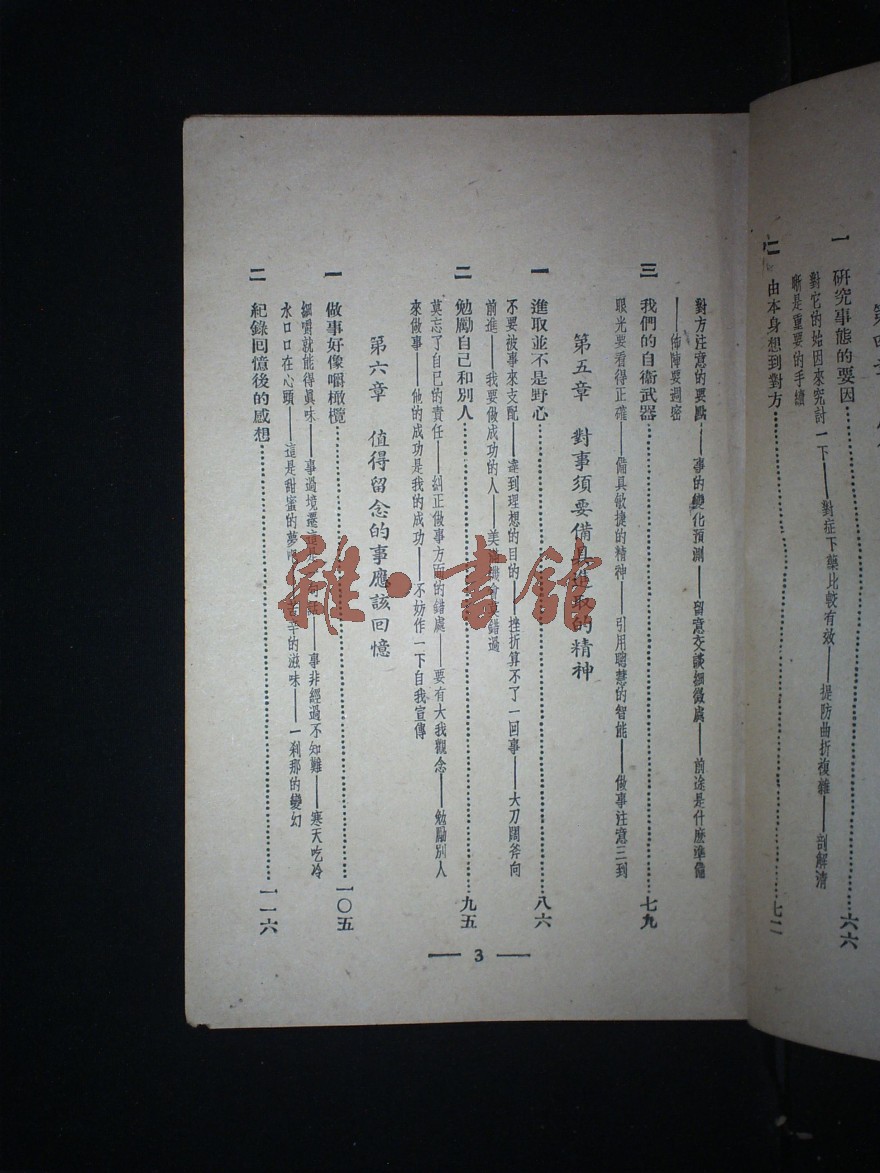 一　研究事態的要因……六六
對它的始因來究討一下——對症下藥比較有效——提防曲折複雜——剖解清
晰是重要的手續
二　由本身想到對方……七二
對方注意的要點——事的變化預測——留意交談細微處——前途是什麼準備
——佈陣要週密
三　我們的自衛武器……七九
眼光要看得正確——備具敏捷的精神——引用聰慧的智能——做事注意三到
第五章　對事須要備具進取的精神
一　進取並不是野心……八六
不要被事來支配——達到理想的目的——挫折算不了一回事——大刀闊斧向
前進——我要做成功的人——美滿機會莫錯過
二　勉勵自己和別人……九五
莫忘了自己的責任——糾正做事方面的錯處——要有大我觀念——勉勵別人
來做事——他的成功是我的成功——不妨作一下自我宣傳
第六章　值得留念的事應該回憶
一　做事好像嚼橄欖……一〇五
細嚼就能得眞味——事過境遷——事非經過不知難——寒天吃冷
水口口在心頭——這是甜蜜的夢——苦辛的滋味——一剎那的變幻
二　紀錄回憶後的感想……一一六
— 3 —
雜·書館